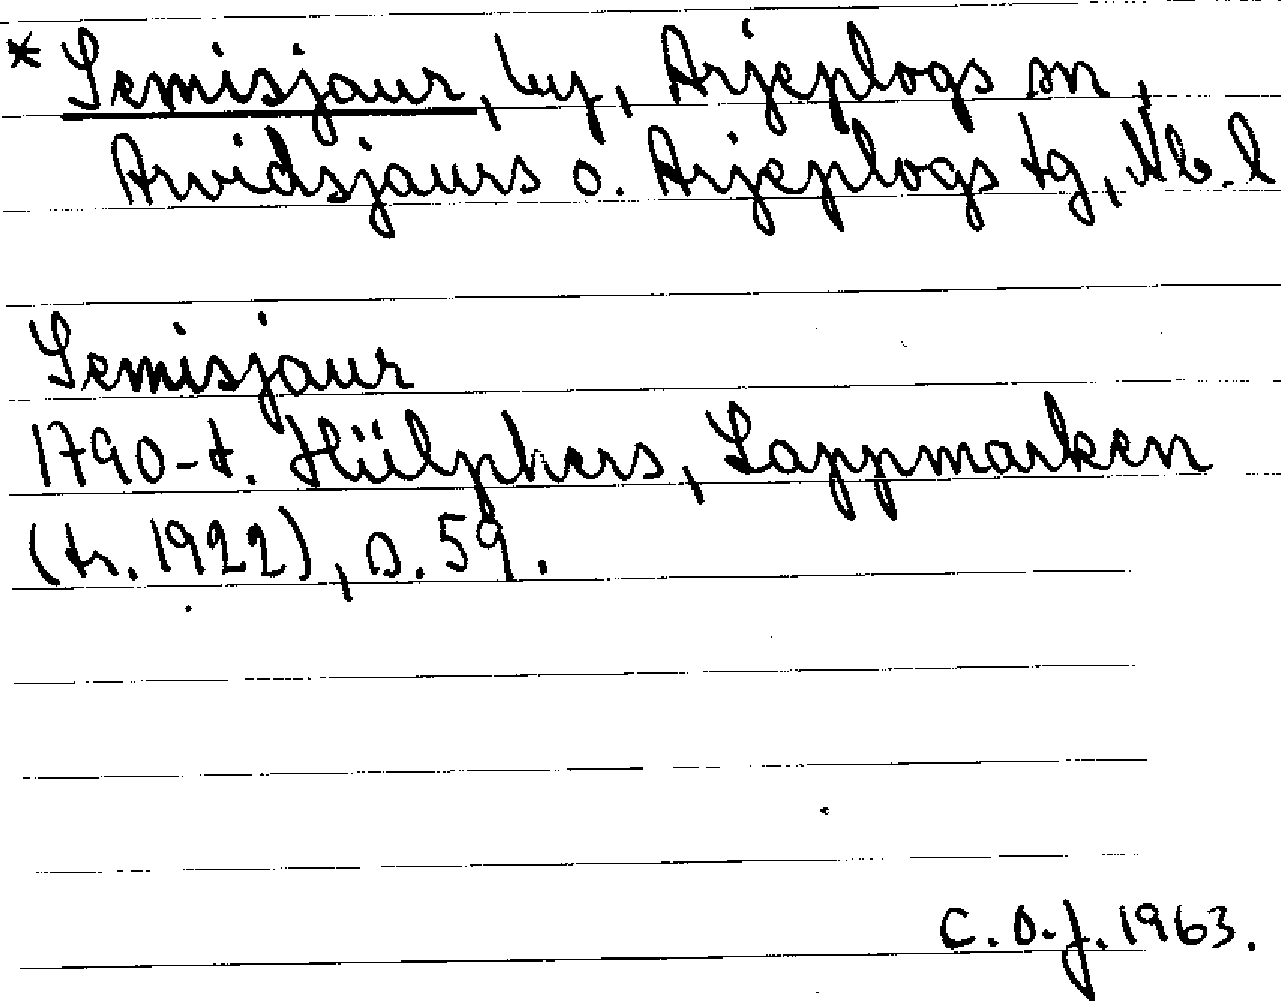 * Semisjaur, by, Arjeplogs sn,
Arvidsjaurs o. Arjeplogs tg, Nb. l
Semisjaur
1790-t. Hülphers, Lappmarken
(tr. 1922), s. 59.
C. O-J. 1963.